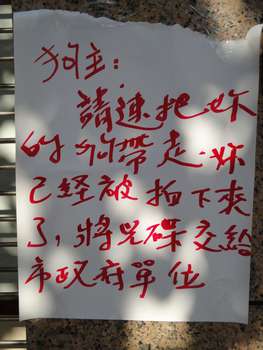 狗主：
請速把妳
的狗帶走．妳
已經被拍下來
了，將光碟交給
市政府單位